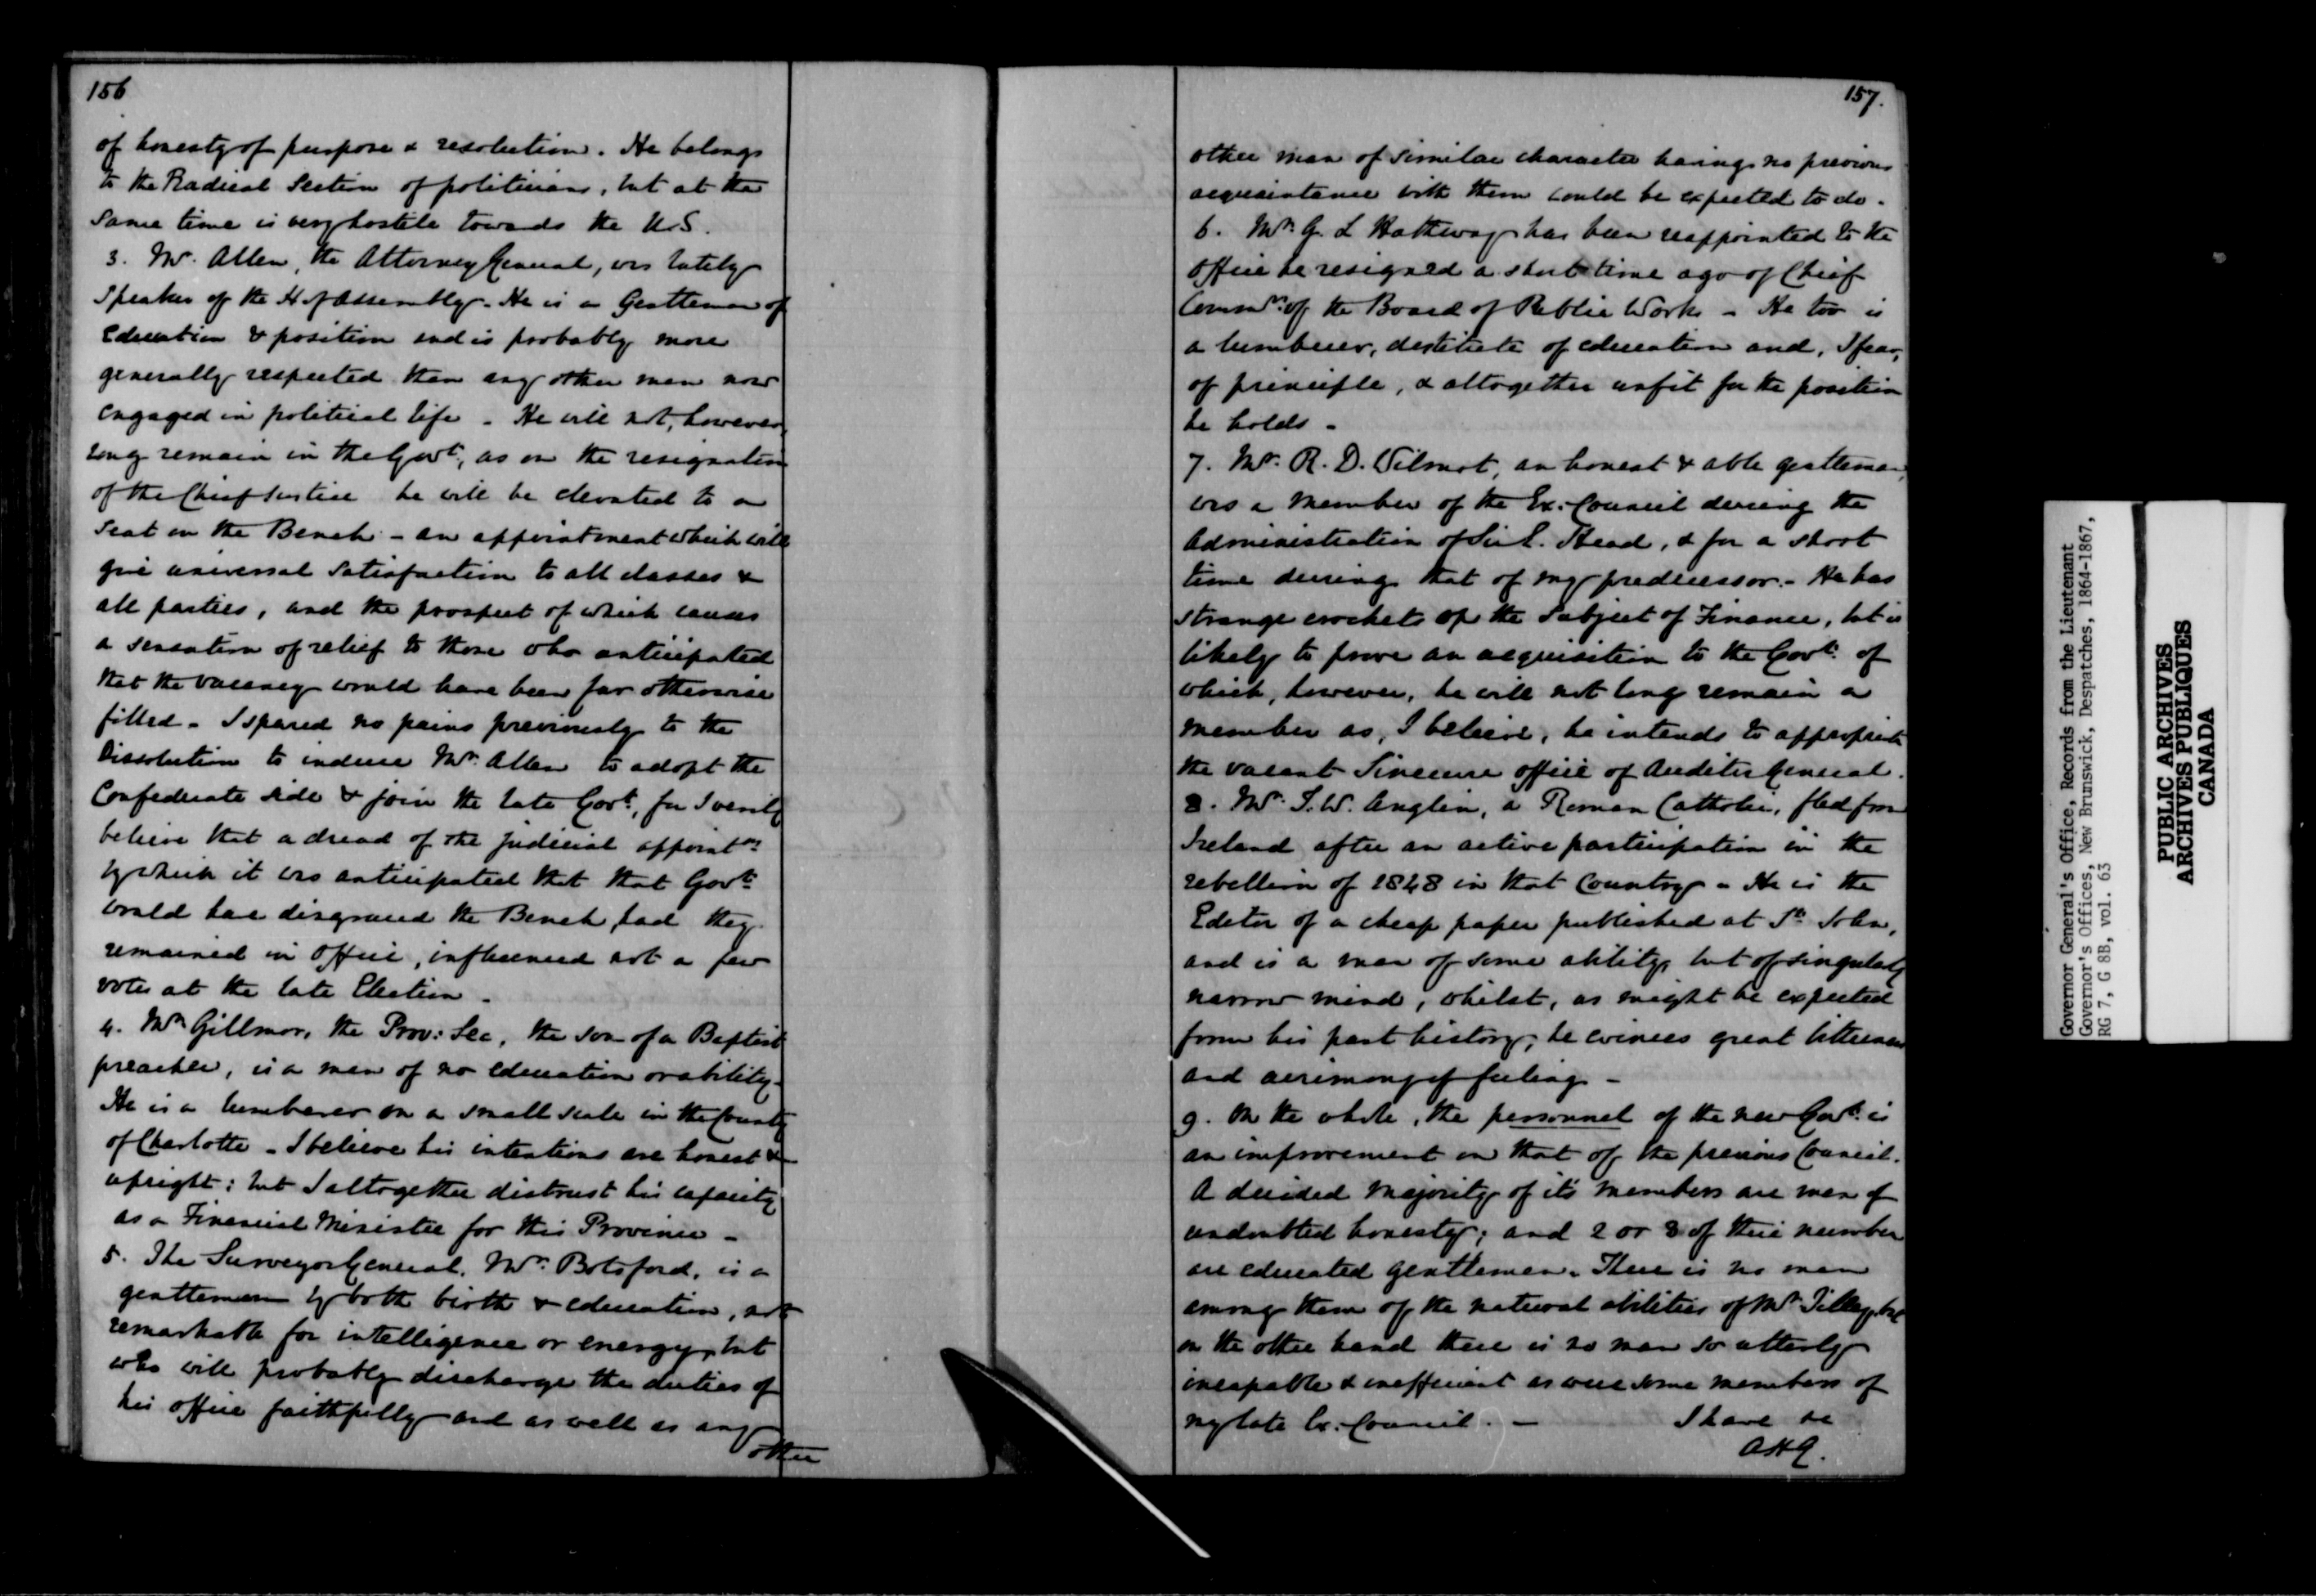 156
of honesty of purpose & resolution. He belongs
to the Radical Section of politicians, but at the
same time is very hostile towards the U.S.
3. Mr. Allen, the Attorney General, was lately
Speaker of the H of Assembly. He is a Gentleman of
Education & position and is probably more
generally respected than any other man now
engaged in political life - He will not, however,
long remain in the Govt., as on the resignation
of the Chief Justice he will be elevated to a
seat on the Bench - an appointment which will
give universal satisfaction to all classes &
all parties, and the prospect of which causes
a sensation of relief to those who anticipated
that the vacancy would have been far otherwise
filled - I spared no pains previously to the
Dissolution to induce Mr. Allen to adopt the
Confederate side & join the late Govt., for I verily
believe that a dread of the judicial appointmts
by which it was anticipated that that Govt.
would have disgraced the Bench, had they
remained in office, influenced not a few
votes at the late Election -
4. Mr. Gillmor, the Prov: Sec, the son of a Baptist
preacher, is a man of no education or ability -
He is a lumberer on a small scale in the County
of Charlotte - I believe his intentions are honest &
upright: but I altogether distrust his capacity
as a Financial Minister for this Province -
5. The Surveyor General, Mr. Botsford, is a
gentleman by both birth & education, not
remarkable for intelligence or energy, but
who will probably discharge the duties of
his office faithfully and as well as any
other
157.
other man of similar character having no previous
acquaintance with them could be expected to do.
6. Mr. G. L Hatheway has been reappointed to the
office he resigned a short time ago of Chief
Commr. of the Board of Public Works - He too is
a lumberer, destitute of education and, I fear,
of principle, & altogether unfit for the position
he holds -
7. Mr. R. D. Wilmot, an honest & able gentleman,
was a member of the Ex: Council during the
Administration of Sir E. Head, & for a short
time during that of my predecessor. - He has
strange crochets on the subject of Finance, but is
likely to prove an acquisition to the Govt. of
which, however, he will not long remain a
member as, I believe, he intends to appropriate
the vacant Sinecure office of Auditor General.
8. Mr. T. W. Anglin, a Roman Catholic, fled from
Ireland after an active participation in the
rebellion of 1848 in that Country - He is the
Editor of a cheap paper published at St. John,
and is a man of some ability, but of singularly
narrow mind, whilst, as might be expected
from his past history, he evinces great bitterness
and acrimony of feeling -
9. On the whole, the personnel of the new Govt. is
an improvement on that of the previous Council.
A decided majority of its members are men of
undoubted honesty; and 2 or 3 of their number
are educated gentlemen. There is no man
among them of the natural abilities of Mr. Tilley, but
on the other hand there is no man so utterly
incapable & inefficient as were some members of
my late Ex: Council. - I have &c
AHG.
Governor General's Office, Records from the Lieutenant
Governor's Offices, New Brunswick, Despatches, 1864-1867,
RG 7, G 8B, vol. 63
PUBLIC ARCHIVES
ARCHIVES PUBLIQUES
CANADA